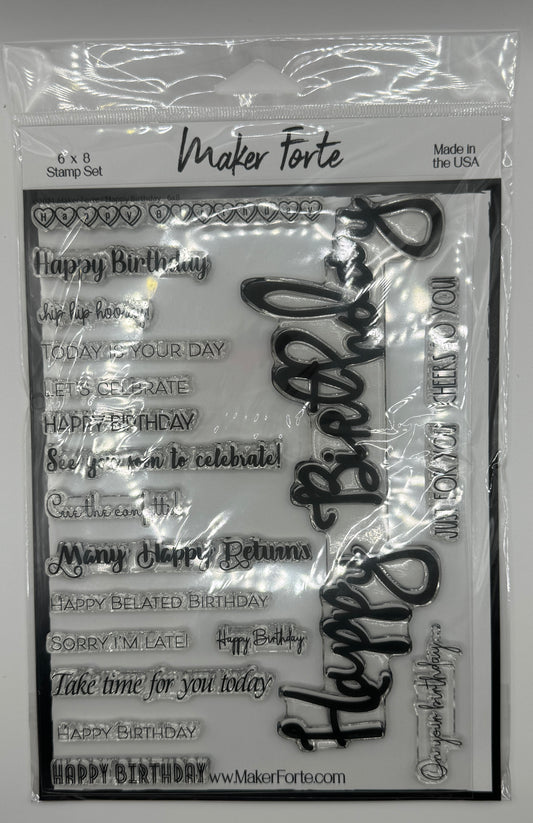 6 x 8
Stamp Set
Maker Forte
Made in
the USA
Happy Birthday
Happy Birthday
hip hip hooray!
TODAY IS YOUR DAY
LET'S CELEBRATE
HAPPY BIRTHDAY
See you soon to celebrate!
Cue the confetti!
Many Happy Returns
HAPPY BELATED BIRTHDAY
SORRY I'M LATE!
Happy Birthday
Take time for you today
HAPPY BIRTHDAY
HAPPY BIRTHDAY
www.MakerForte.com
Happy Birthday
CHEERS TO YOU
JUST FOR YOU
On your birthday...